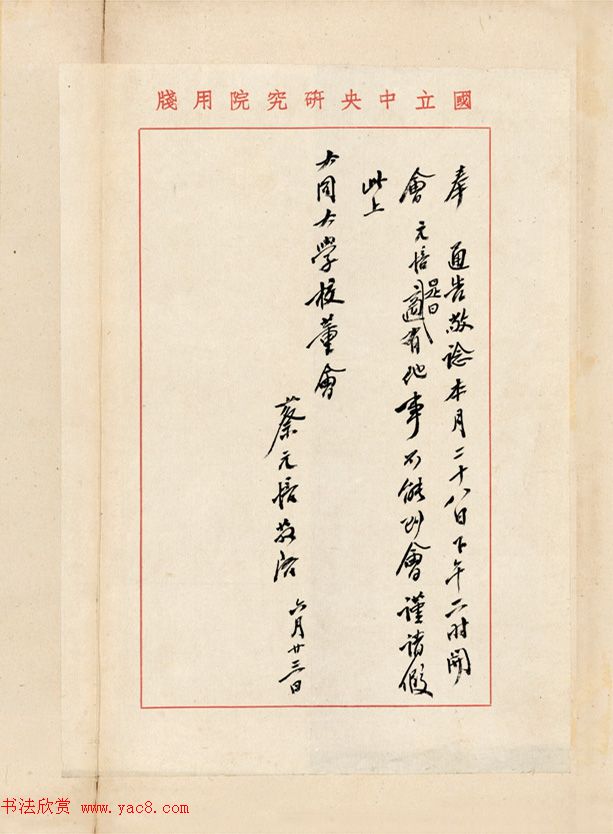 國立中央研究院用牋
奉 通告敬諗本月二十八日下午二时開
會元培是日適有他事不能到會謹請假
此上
大同大學校董會
蔡元培敬啓 六月廿三日
书法欣赏 www.yac8.com